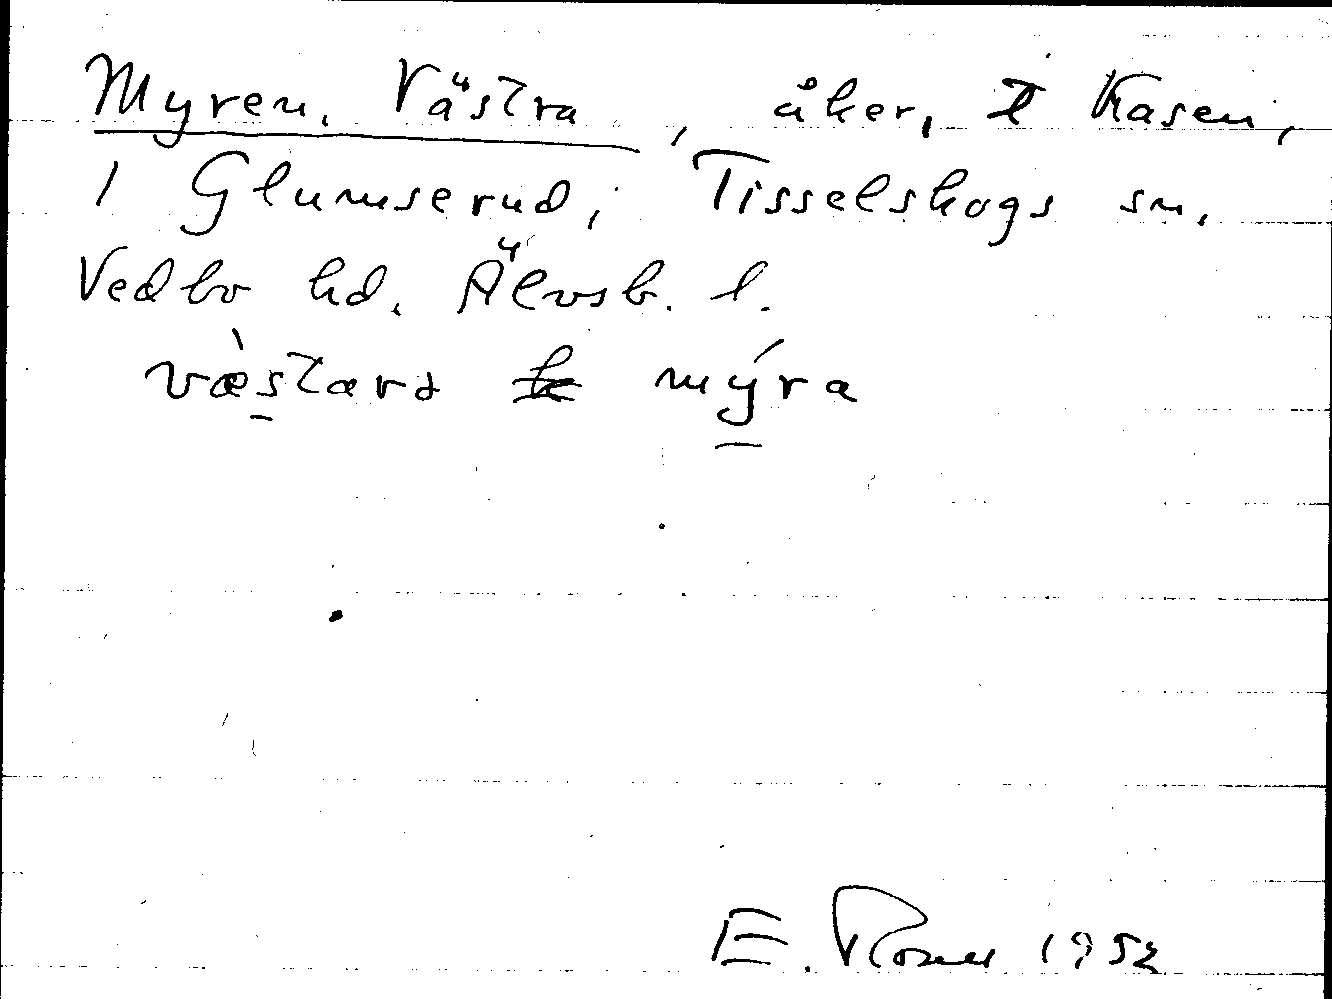 Myren, Västra, åker, t Kasen,
1 Glumserud, Tisselskogs sn,
Vedbo hd. Älvsb. l.
væ̀stara mýra
E. 1952